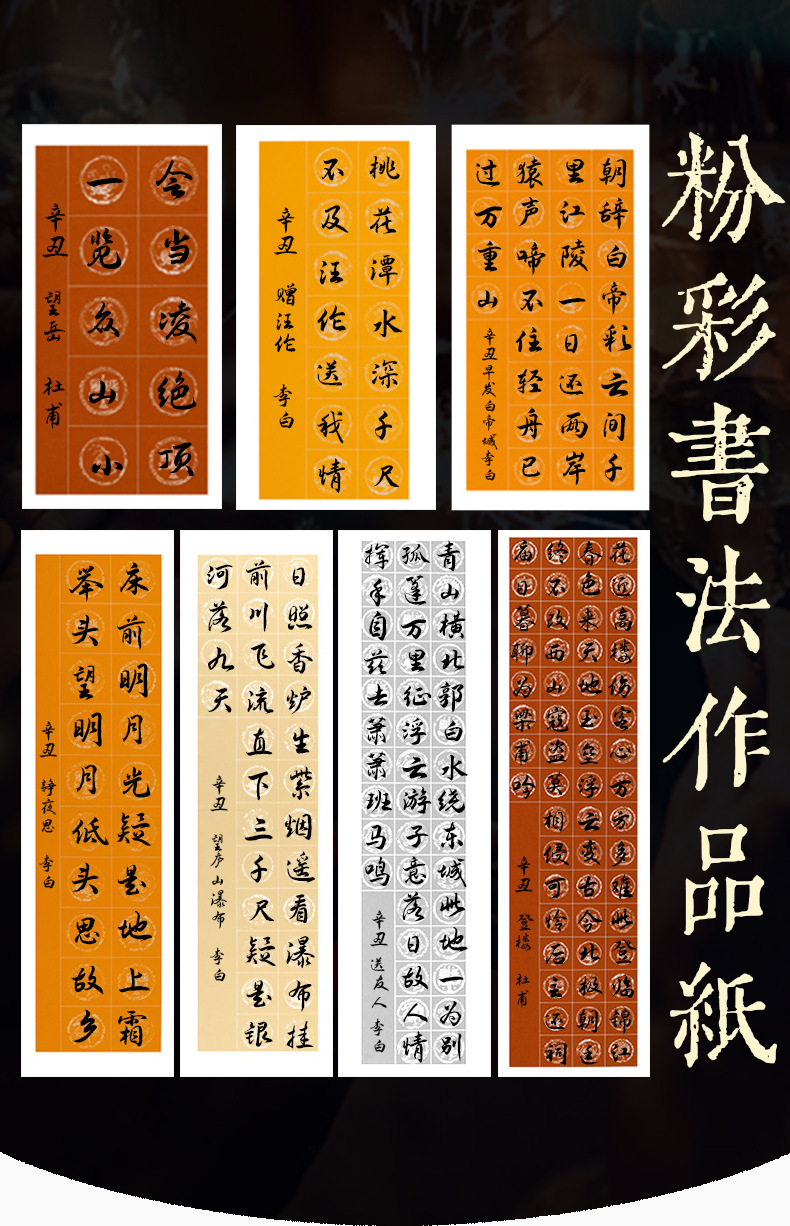 粉彩書法作品紙
今当凌绝顶
一览众山小
辛丑 望岳 杜甫
桃花潭水深千尺
不及汪伦送我情
辛丑 赠汪伦 李白
朝辞白帝彩云间千
里江陵一日还两岸
猿声啼不住轻舟已
过万重山
辛丑早发白帝城李白
床前明月光疑是地上霜
举头望明月低头思故乡
辛丑 静夜思 李白
日照香炉生紫烟遥看瀑布挂
前川飞流直下三千尺疑是银
河落九天
辛丑 望庐山瀑布 李白
青山横北郭白水绕东城此地一为别
孤篷万里征浮云游子意落日故人情
挥手自兹去萧萧班马鸣
辛丑 送友人 李白
花近高楼伤客心万方多难此登临锦江
春色来天地玉垒浮云变古今北极朝廷
终不改西山寇盗莫相侵可怜后主还祠
庙日暮聊为梁甫吟
辛丑 登楼 杜甫